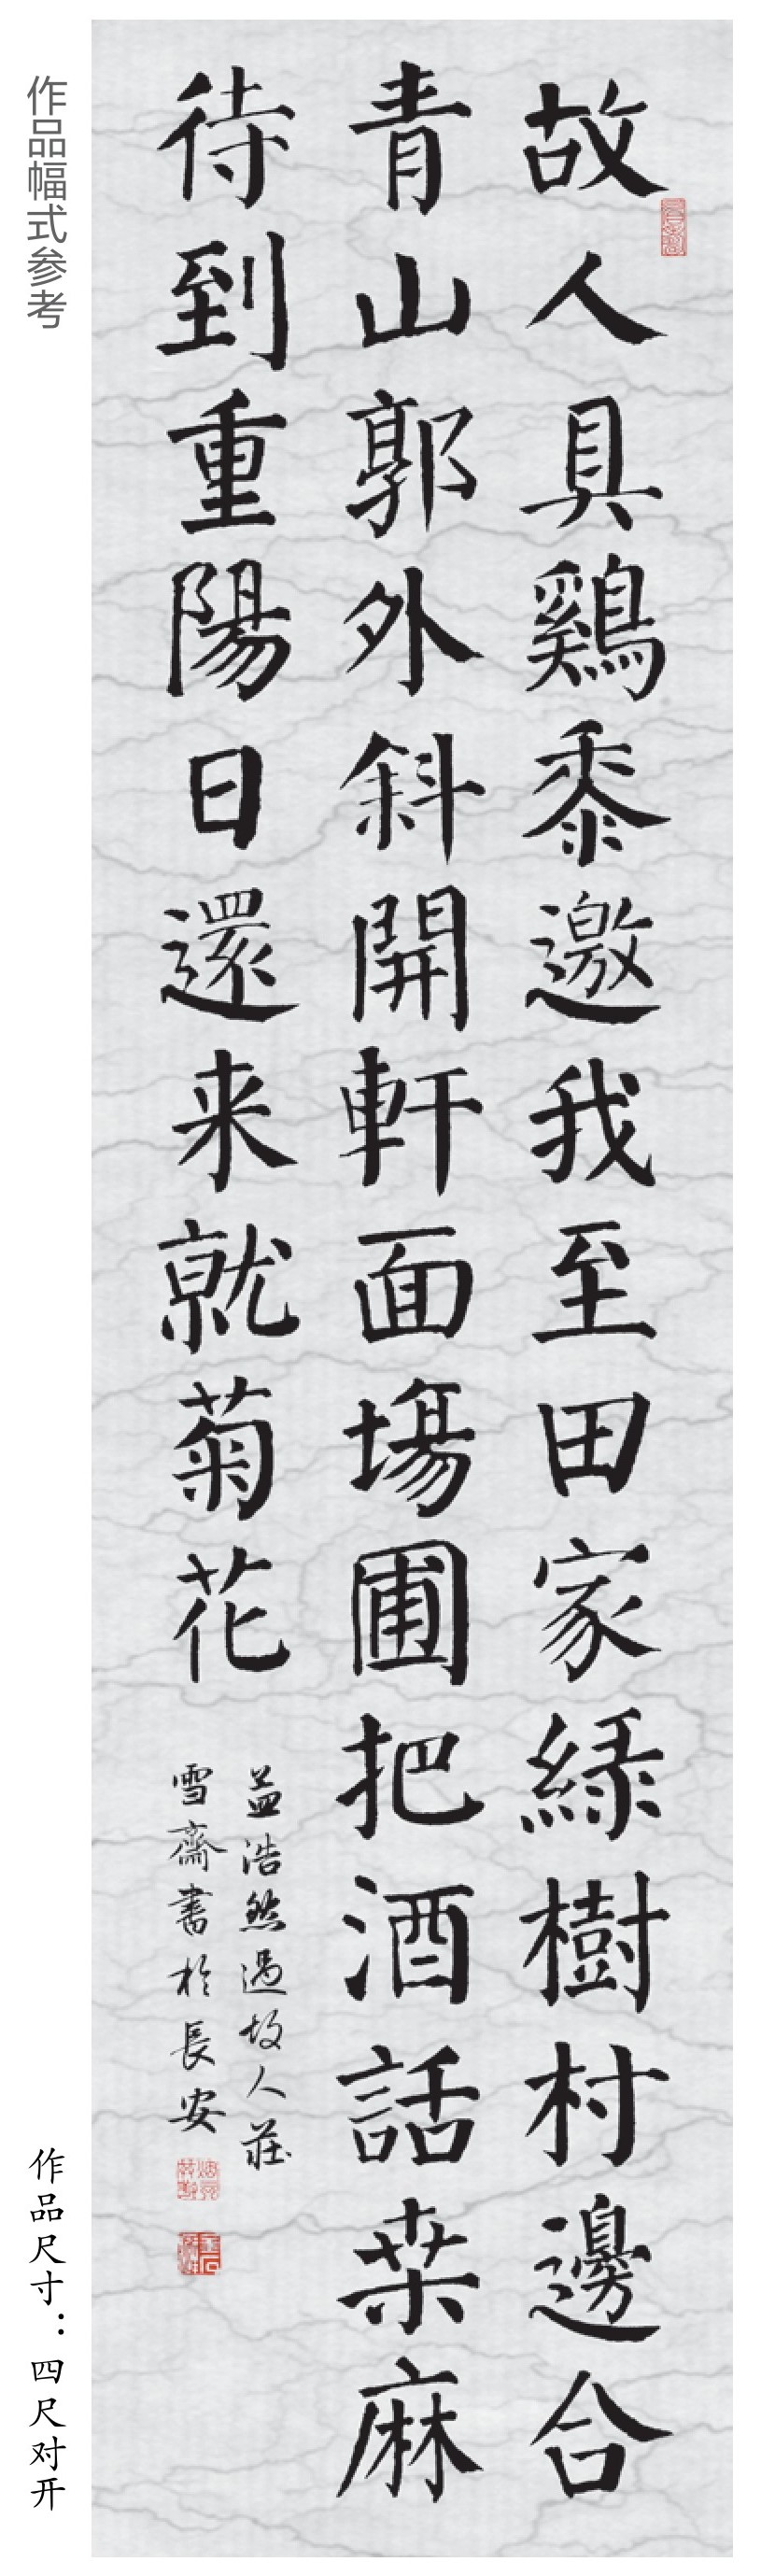 作品幅式参考
故人具鷄黍邀我至田家綠樹村邊合
青山郭外斜開軒面場圃把酒話桒麻
待到重陽日還来就菊花
孟浩然過故人莊
雪齋書於長安
作品尺寸：四尺对开